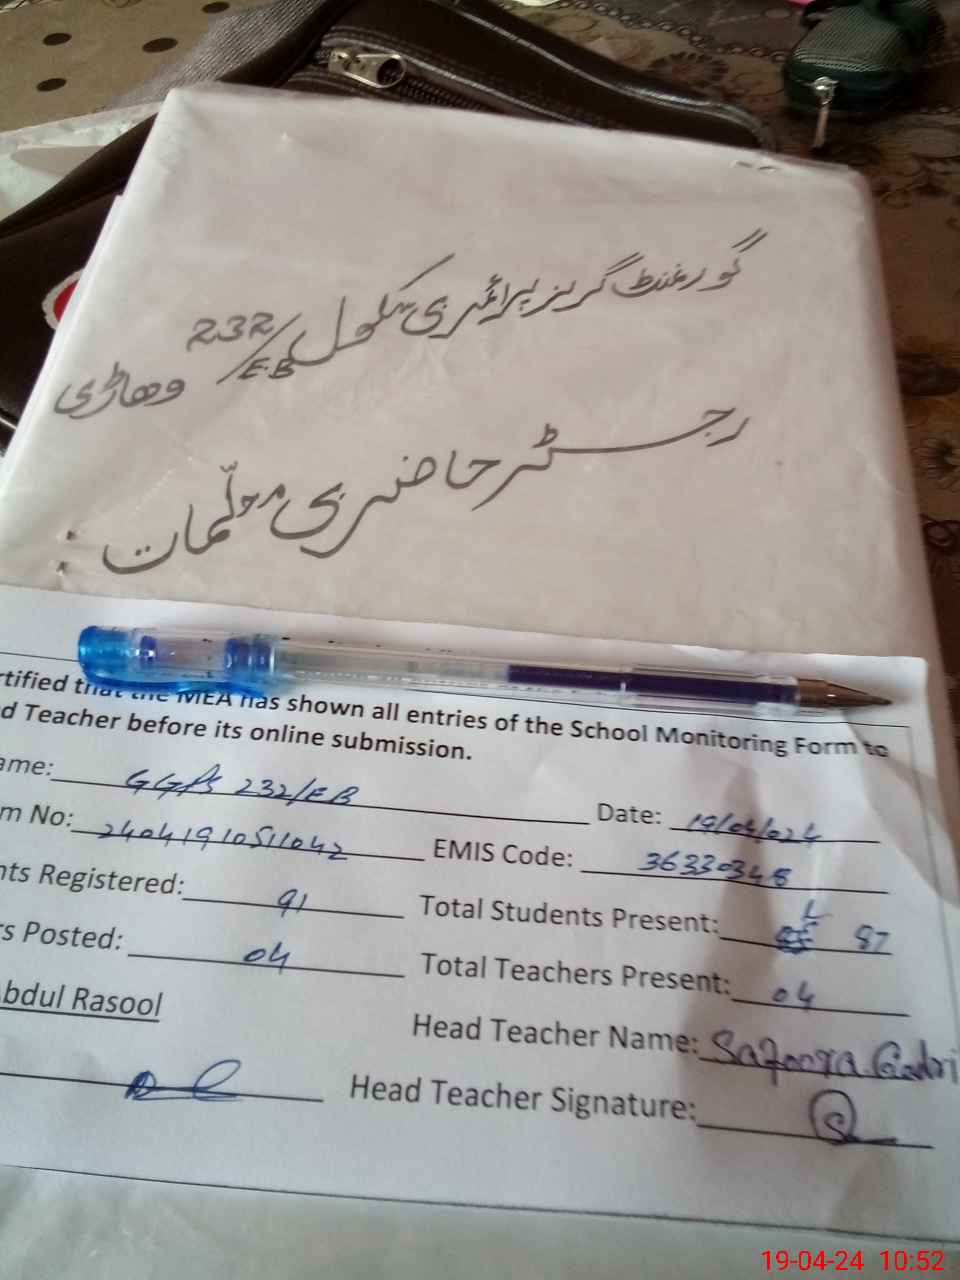 گورنمنٹ گرلز پرائمری سکول 232/E.B وھاڑی
رجسٹر حاضری معلّمات
rtified that the MEA has shown all entries of the School Monitoring Form to
d Teacher before its online submission.
ame: GGPS 232/EB Date: 19/04/024
m No: 24041910511042 EMIS Code: 36330348
nts Registered: 91 Total Students Present: 87
rs Posted: 04 Total Teachers Present: 04
Abdul Rasool Head Teacher Name:
Head Teacher Signature:
19-04-24 10:52